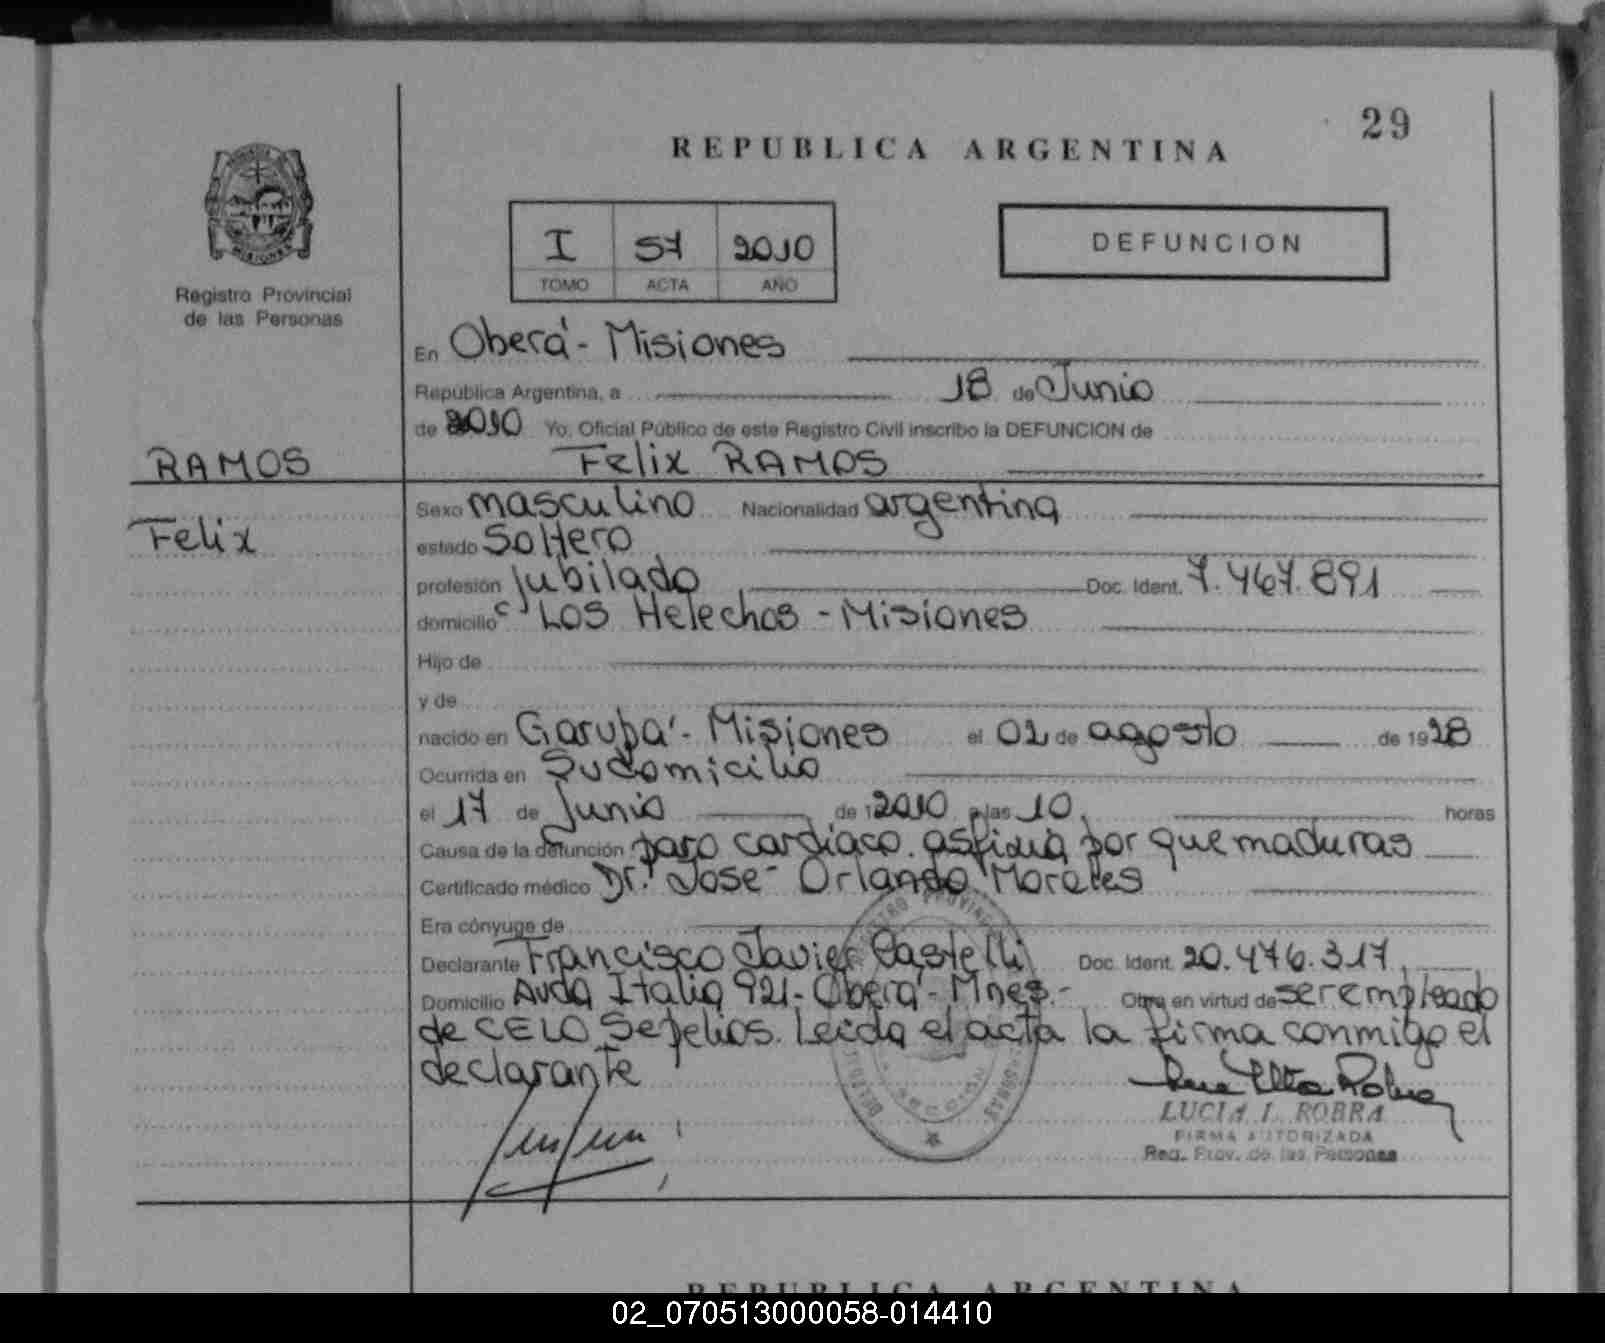 29
REPUBLICA ARGENTINA
MISIONES
Registro Provincial
de las Personas
I 57 2010
TOMO ACTA AÑO
DEFUNCION
En Oberá - Misiones
República Argentina, a 18 de Junio
de 2010 Yo, Oficial Público de este Registro Civil inscribo la DEFUNCION de
RAMOS Felix RAMOS
Sexo masculino Nacionalidad argentina
Felix
estado Soltero
profesión jubilado Doc. Ident. 7.467.891
domicilio Los Helechos - Misiones
Hijo de
y de
nacido en Garupá - Misiones el 02 de agosto de 1928
Ocurrida en Su domicilio
el 17 de Junio de 2010 a las 10, horas
Causa de la defunción paro cardiaco. asfixia por quemaduras
Certificado médico Dr. José Orlando Morales
Era cónyuge de
Declarante Francisco Javier Castelli Doc. Ident. 20.476.317,
Domicilio Avda Italia 921 - Oberá - Mnes - Obra en virtud de ser empleado
de CELO Sepelios. Leida el acta la firma conmigo el
declarante
LUCIA I. ROBRA
FIRMA AUTORIZADA
Reg. Prov. de las Personas
REPUBLICA ARGENTINA
02_070513000058-014410